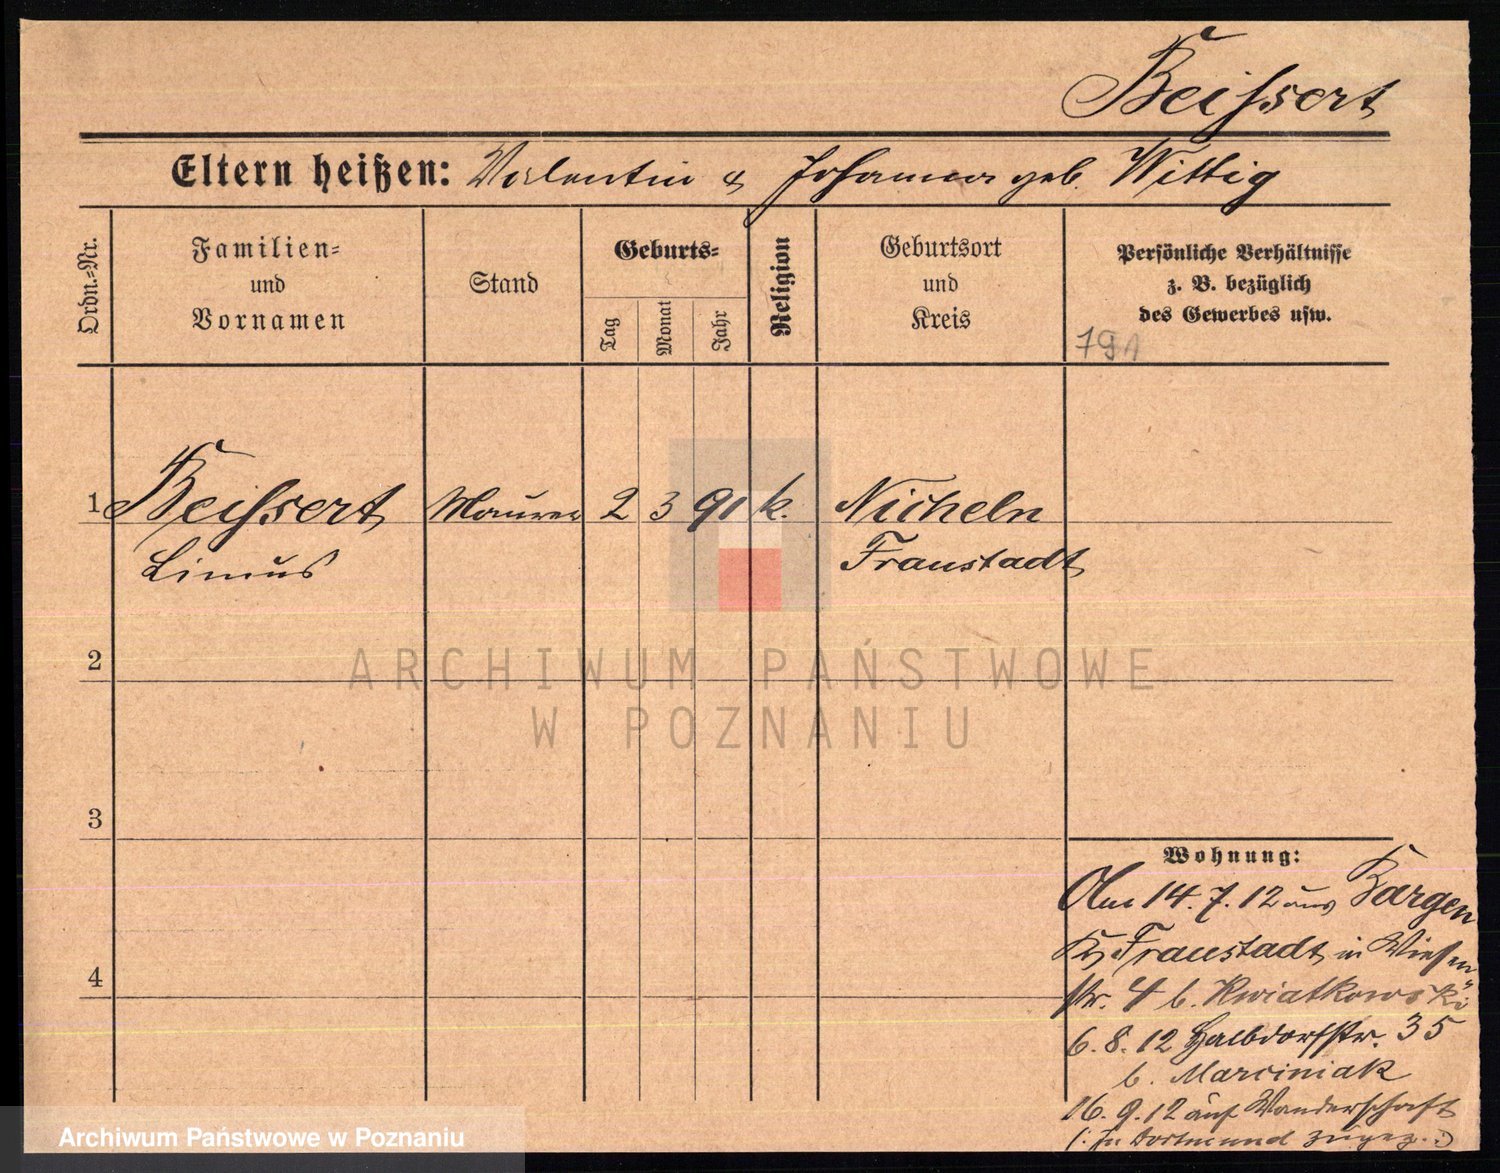 Beissert
Eltern heißen: Valentin & Johanna geb. Wittig
Ordn.-Nr.
Familien-
und
Vornamen
Stand
Geburts-
Tag
Monat
Jahr
Religion
Geburtsort
und
Kreis
Persönliche Verhältnisse
z. B. bezüglich
des Gewerbes usw.
791
1 Beissert Maurer 2 3 91 k. Nicheln
Linus Fraustadt
2
ARCHIWUM PAŃSTWOWE
W POZNANIU
3
Wohnung:
Am 14.7.12 aus Bargen
Kr Fraustadt in Wiesen
4
str. 4 b. Kwiatkowski
6.8.12 Halbdorfstr. 35
b. Marciniak
16.9.12 auf Wanderschaft
(: In Dortmund zugez. :)
Archiwum Państwowe w Poznaniu